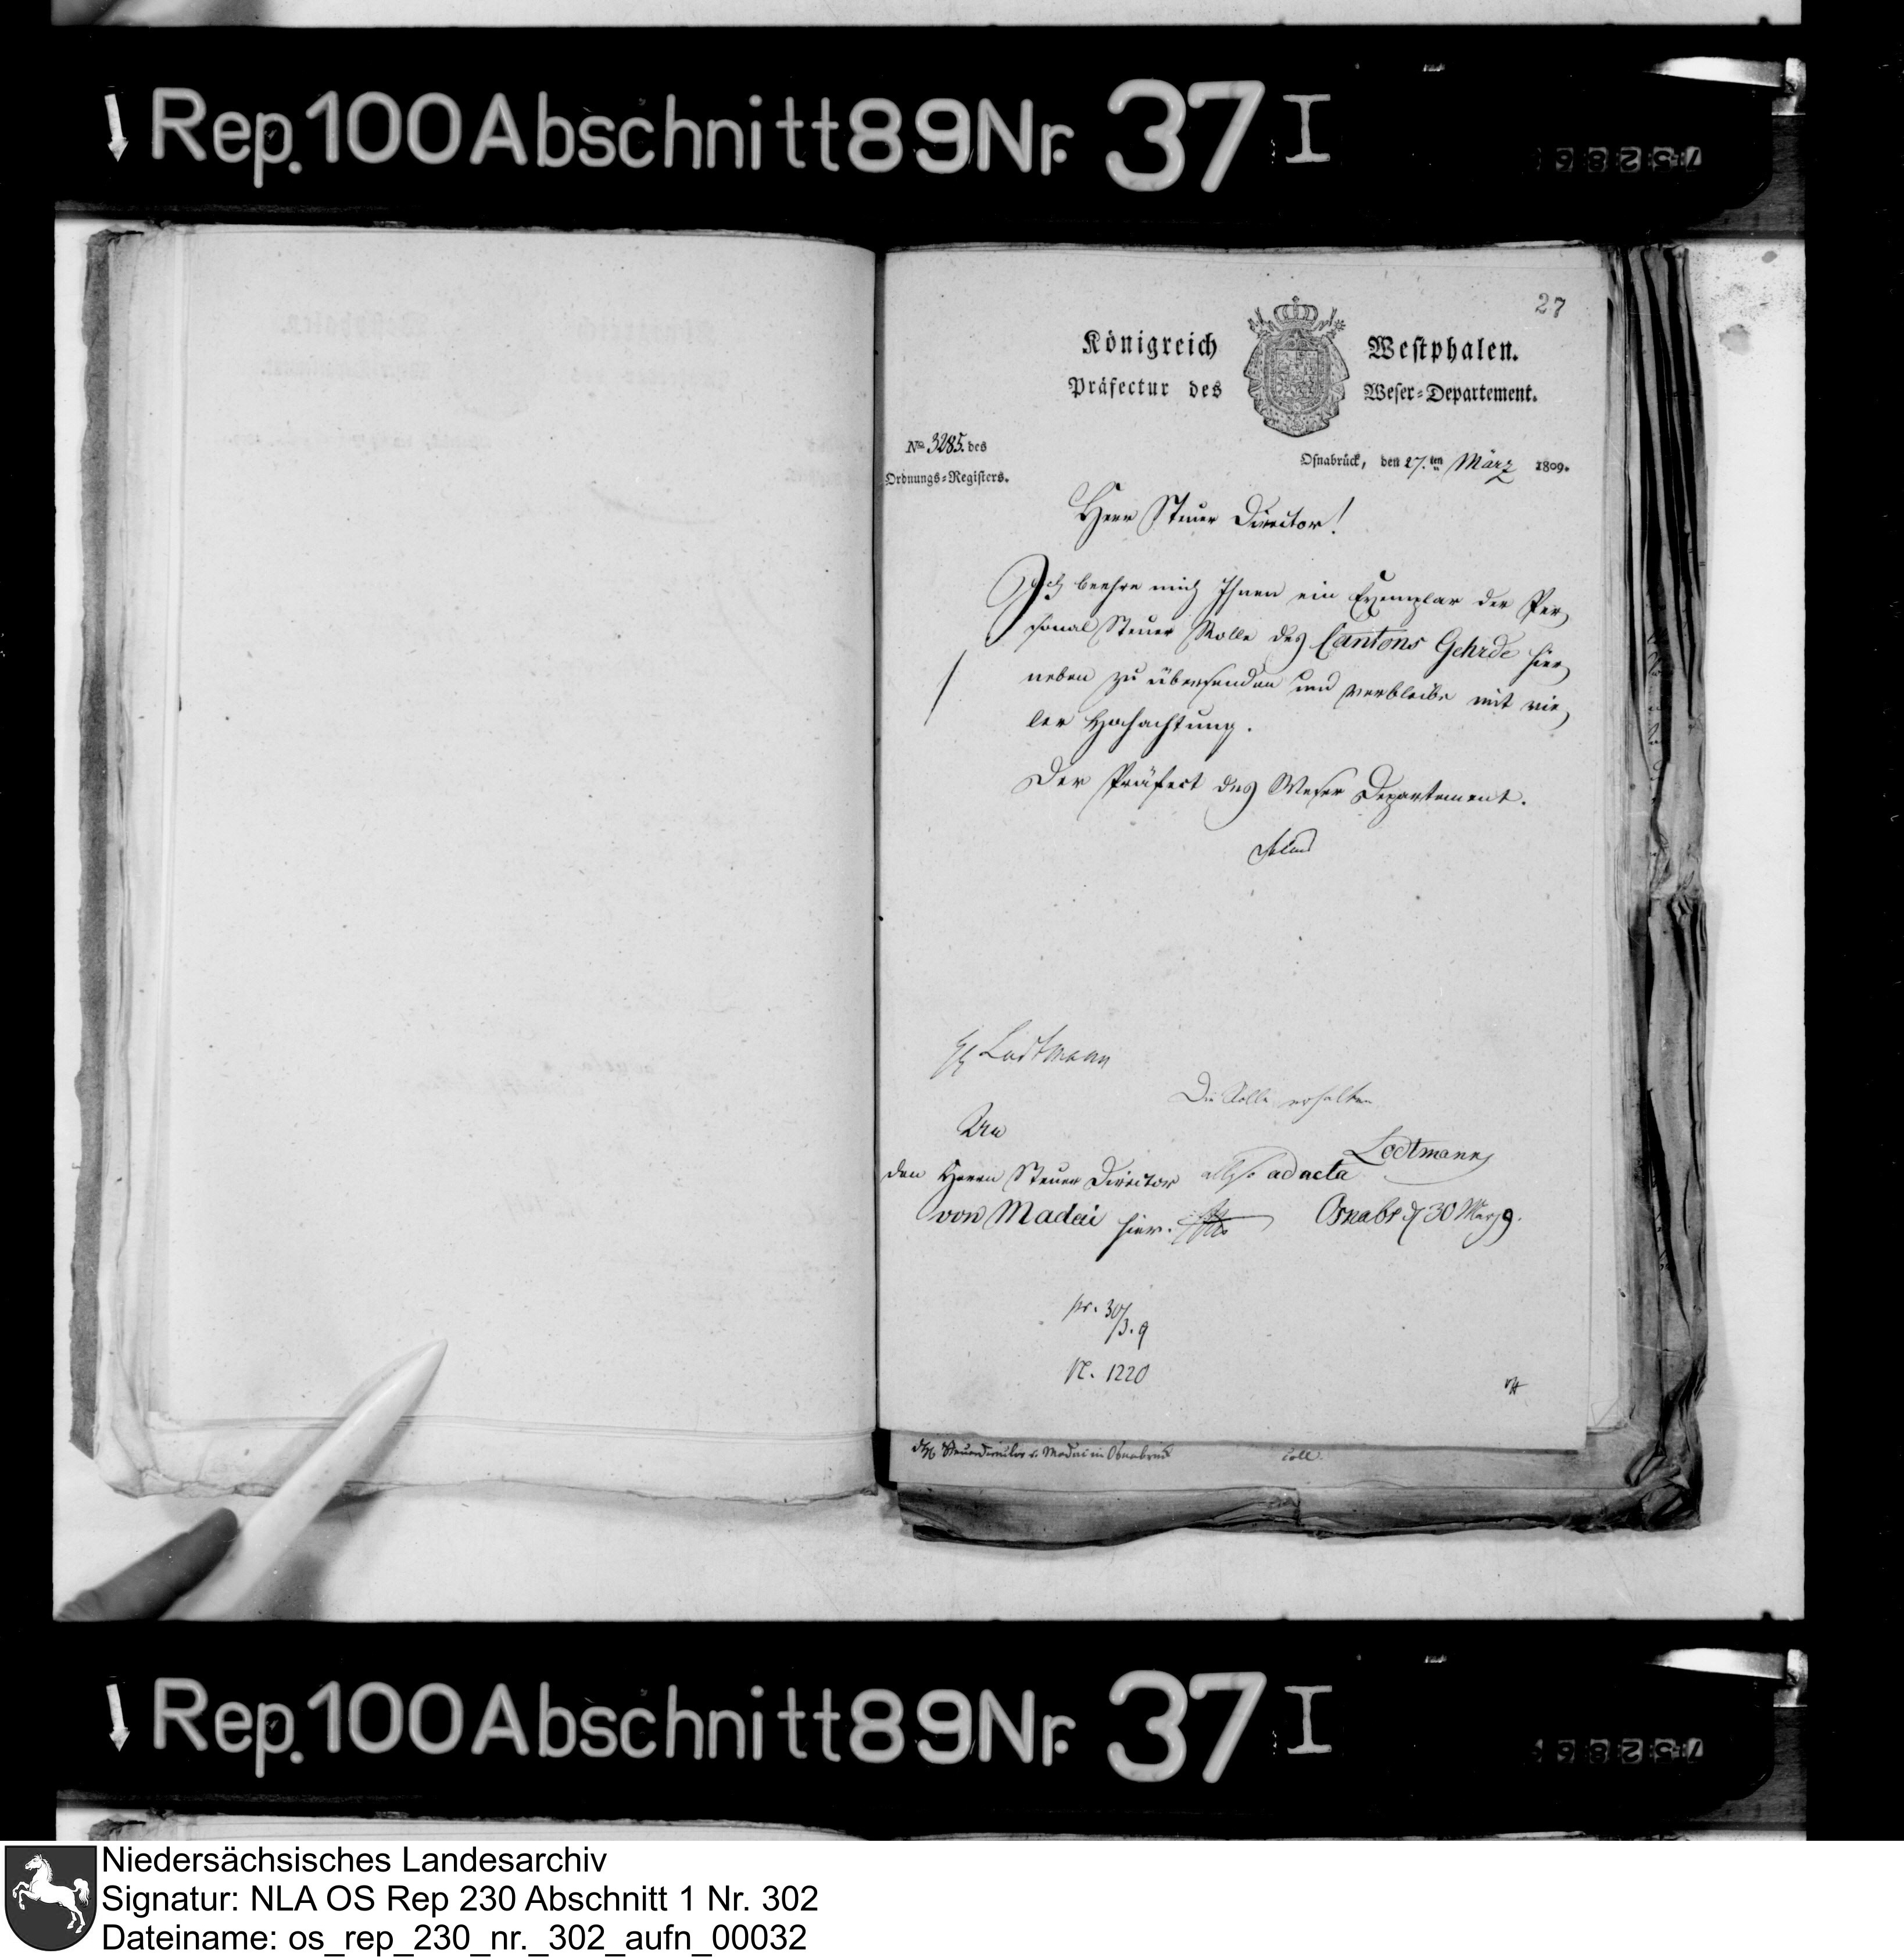 Rep. 100 Abschnitt 89 Nr. 37 I
27
Königreich Westphalen.
Präfectur des Weser=Departement.
No 3285. des
Ordnungs=Registers.
Osnabrück, den 27.ten März 1809.
Herr Steuer Director!
Ich beehre mich Ihnen ein Exemplar der Per,
sonal Steuer Rolle des Cantons Gehrde hier,
neben zu übersenden und verbleibe mit vie,
ler Hochachtung.
Der Präfect des Weser Departement.
H Lodtmann
Die Rolle erhalten
Lodtmann
An
den Herrn Steuer Director
von Madai hier.
ad acta
Osnabr d 30 Merz 9.
pr. 30/3. 9
N. 1220
Steuerdirector v. Madai in Osnabrück
Rep. 100 Abschnitt 89 Nr. 37 I
Niedersächsisches Landesarchiv
Signatur: NLA OS Rep 230 Abschnitt 1 Nr. 302
Dateiname: os_rep_230_nr._302_aufn_00032